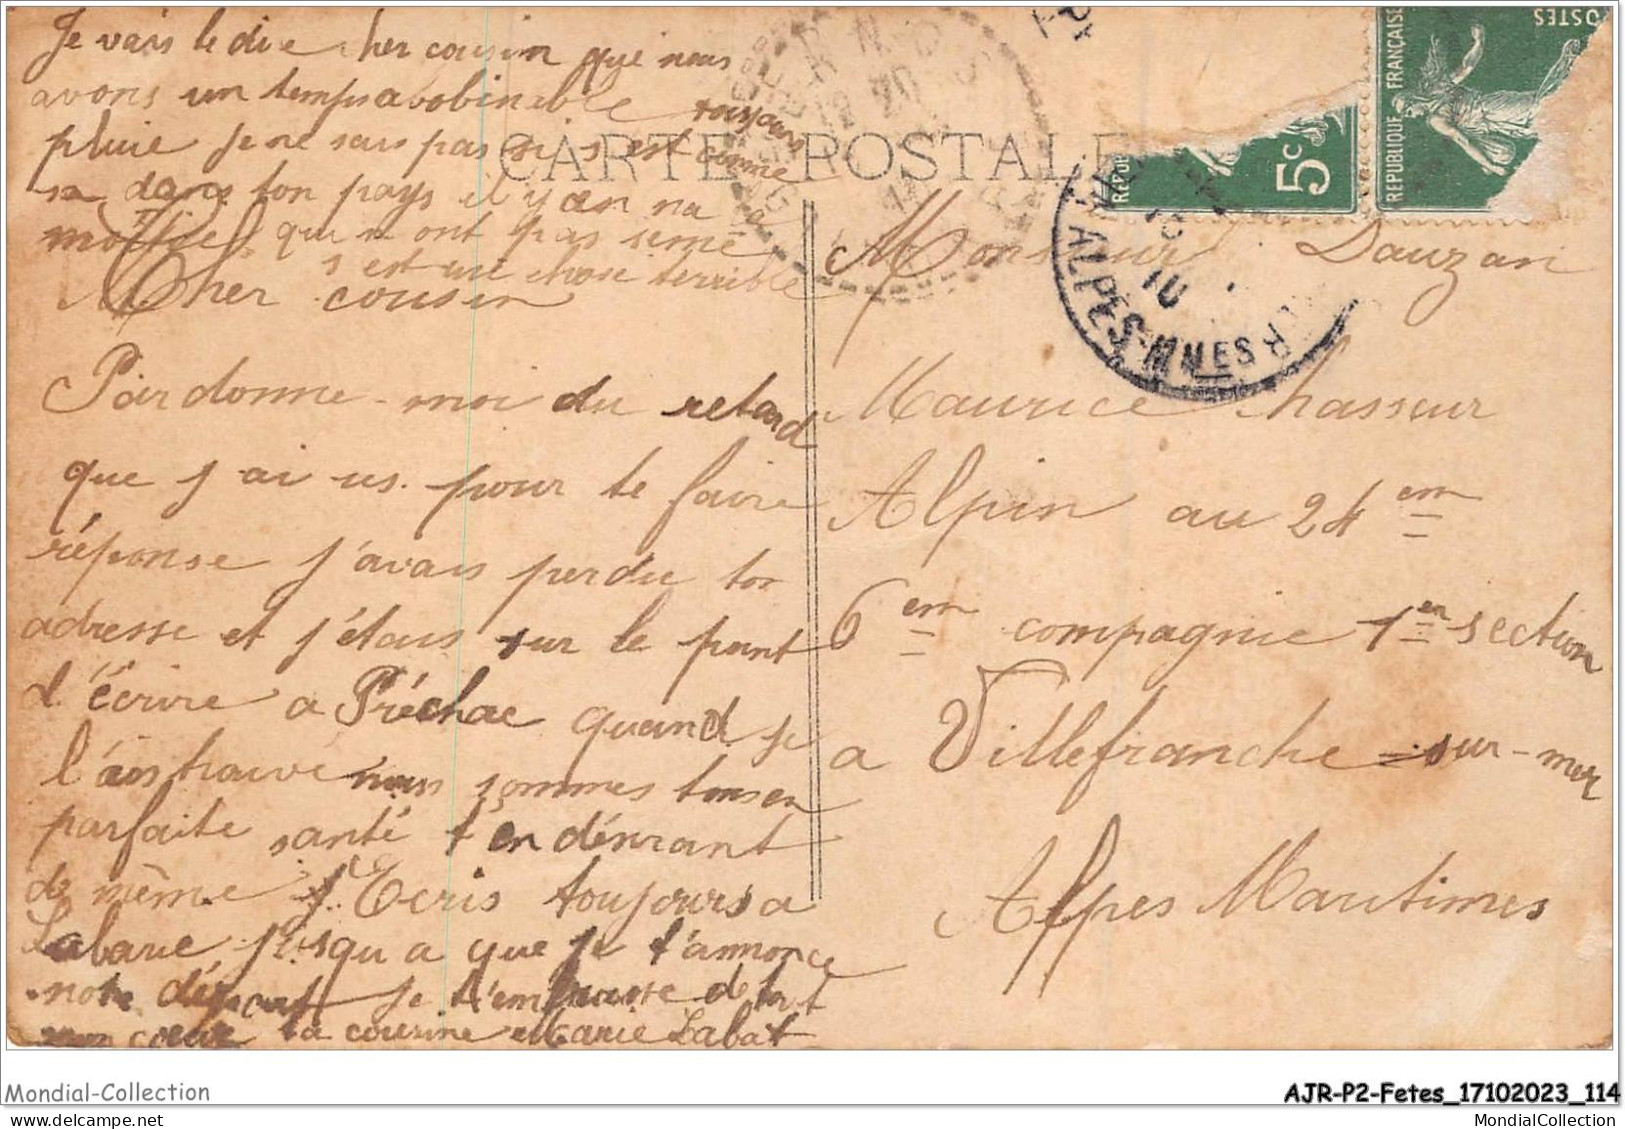 Je vais le dire cher cousin que nous
avons un temps abobinable toujours
pluie je ne sais pas si s est comme
sa dans ton pays il y an na
moitié qui n ont pas semé
s est une chose terrible
Cher cousin
Pardonne-moi du retard
que j ai us. pour te faire
réponse j'avais perdu ton
adresse et j'étais sur le point
d'écrire a Préchac quand je
l'ais trouvé nous sommes tous en
parfaite santé t'en désirant
de même j'Ecris toujours a
Labarie jusqu a que je t'annonce
notre départ je t'embrasse de tout
mon coeur ta cousine Marie Labat
CARTE POSTALE
Monsieur Dauzan
Maurice chasseur
Alpin au 24 em
6 em compagnie 1 er section
a Villefranche-sur-mer
Alpes Maritimes
REPUBLIQUE FRANÇAISE
POSTES
5c
REPUB
ALPES-MMES
10
20
Mondial-Collection
AJR-P2-Fetes_17102023_114
MondialCollection